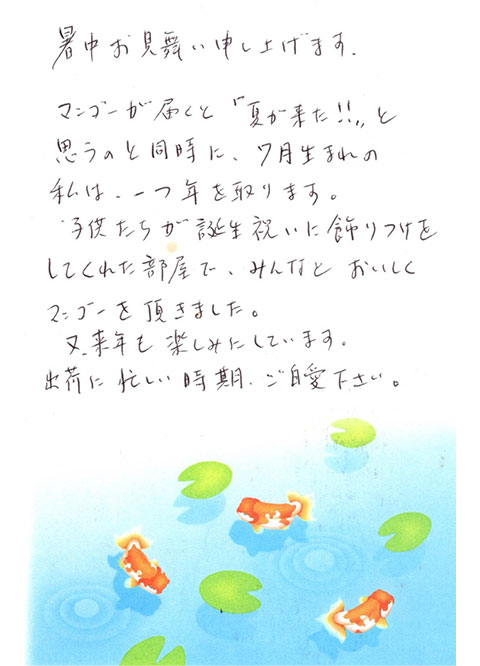 暑中お見舞い申し上げます.
マンゴーが届くと〝夏が来た!!〟と
思うのと同時に、7月生まれの
私は、一つ年を取ります。
子供たちが誕生祝いに飾りつけを
してくれた部屋で、みんなと おいしく
マンゴーを頂きました。
又.来年も楽しみにしています。
出荷に忙しい時期.ご自愛下さい。